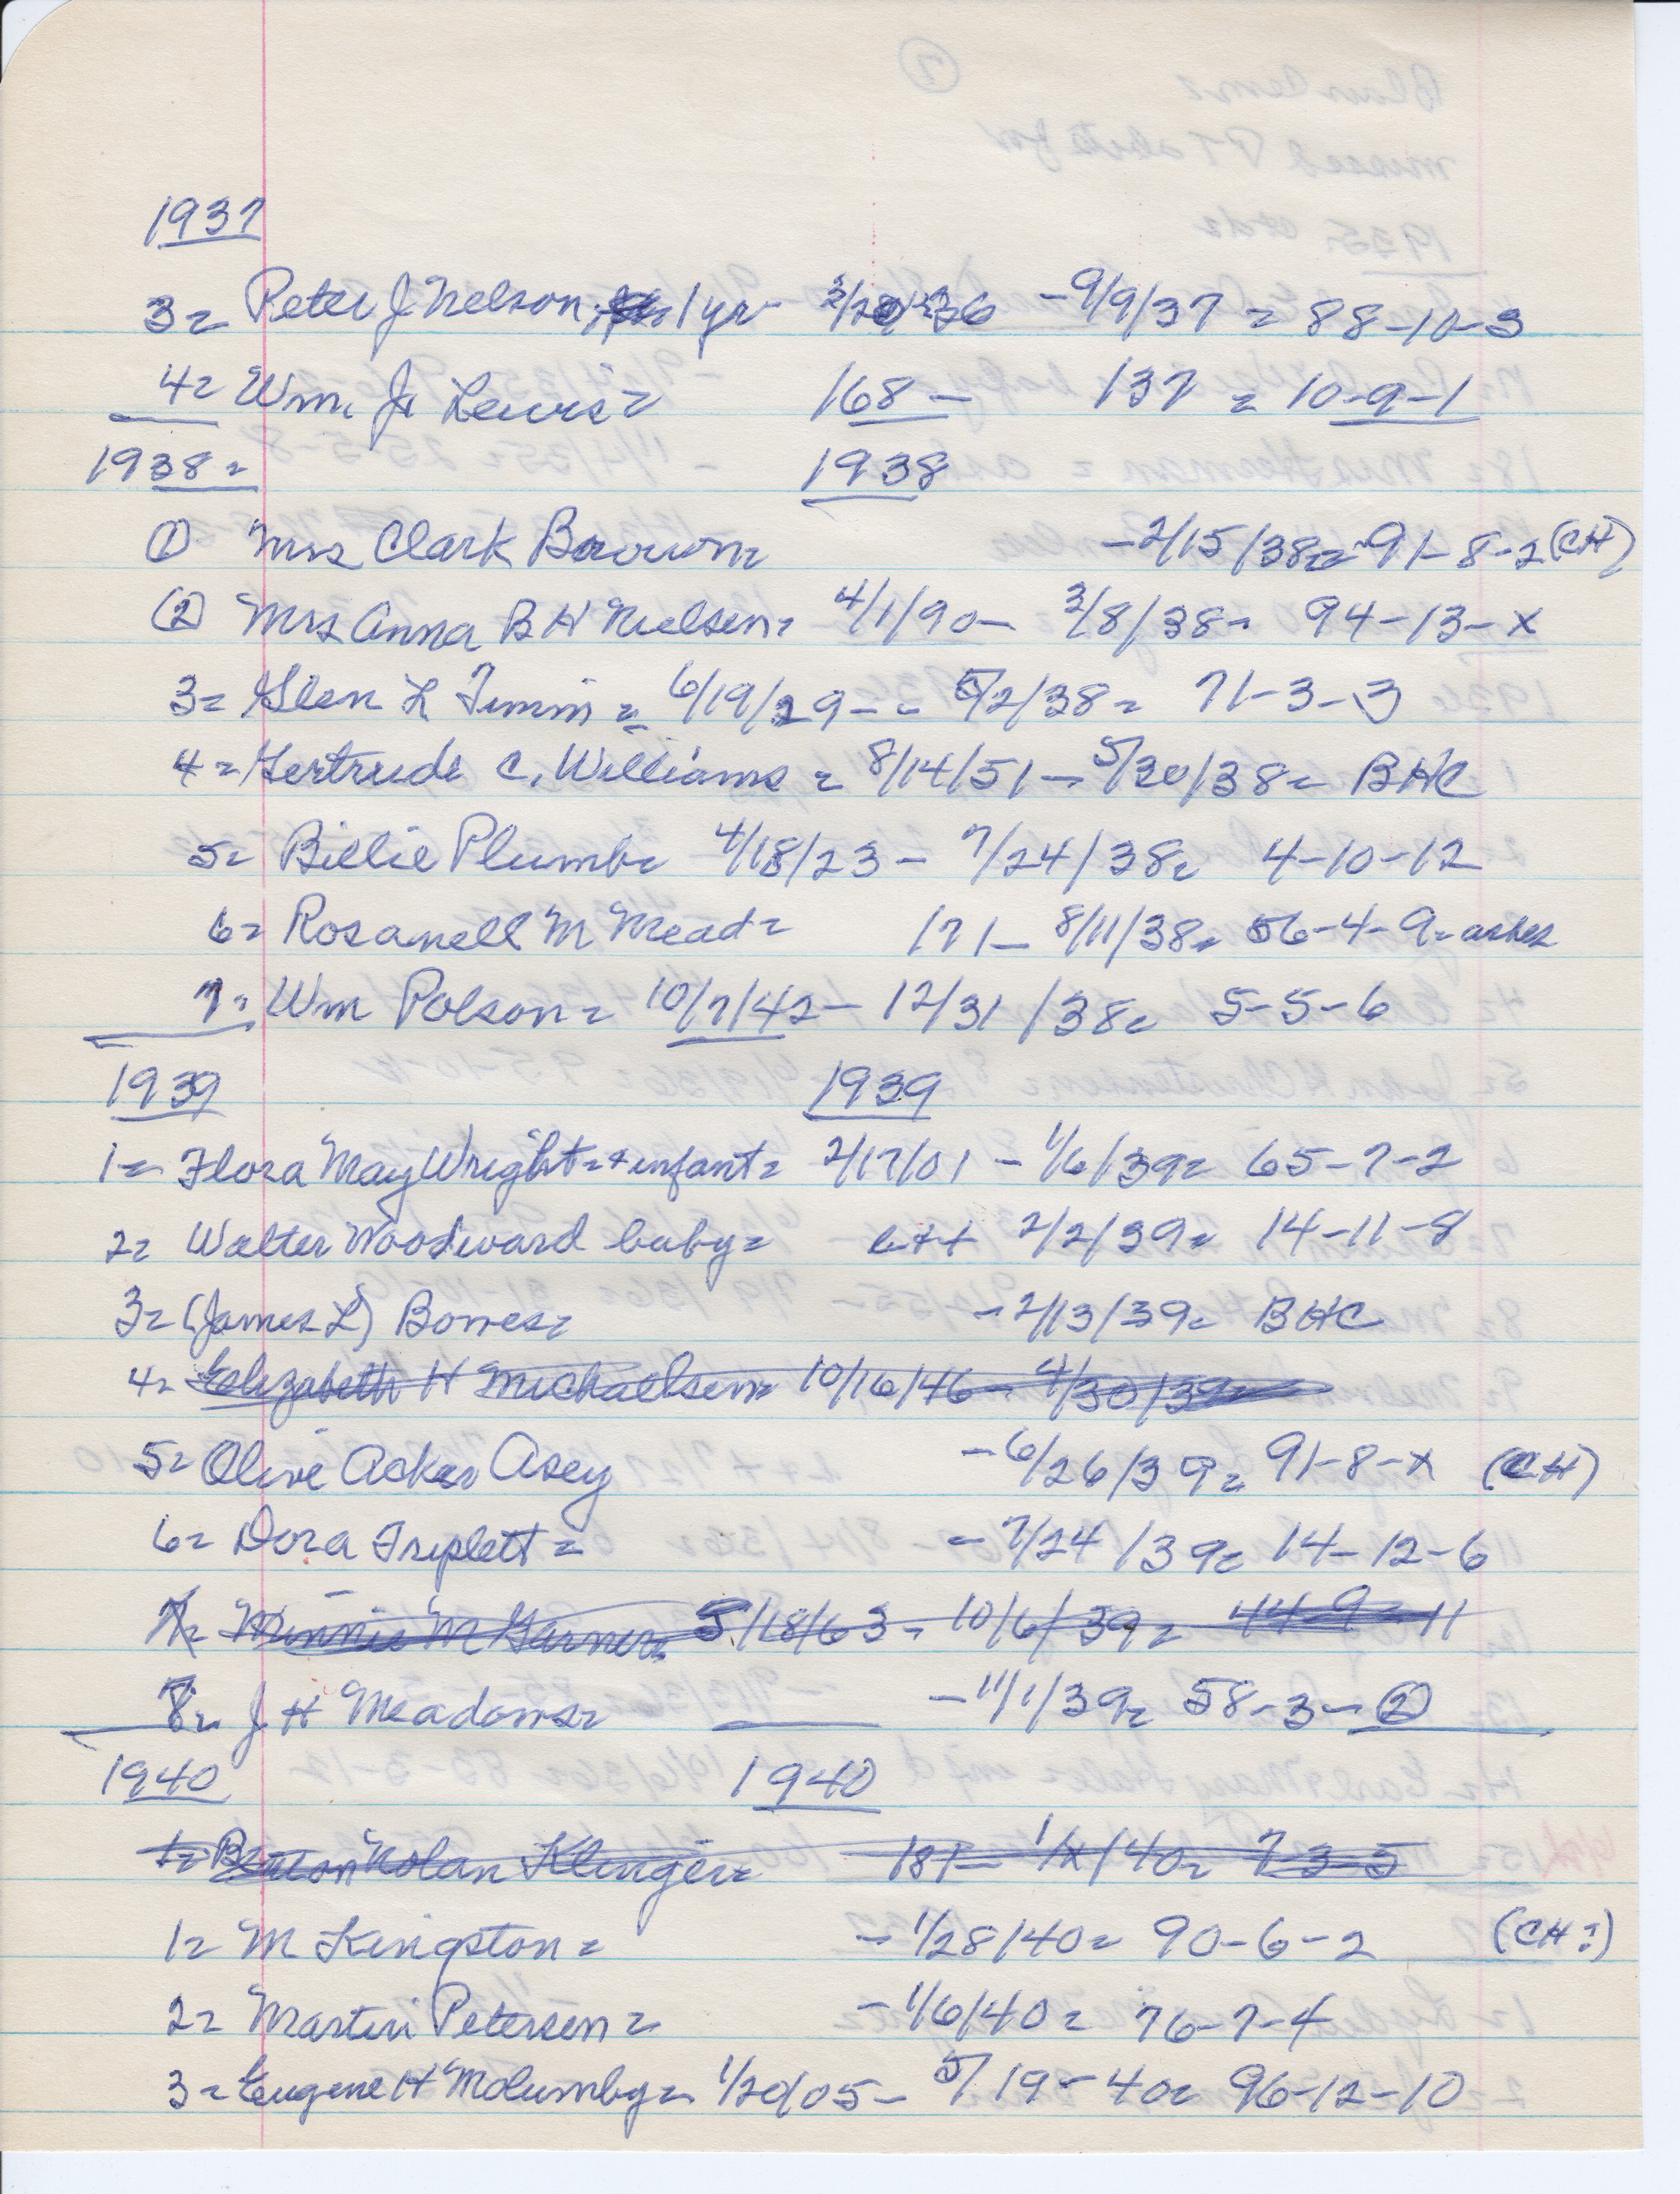 1937
3= Peter J Nelson, 1 yr - 36 - 9/9/37 = 88-10-3
4= Wm. J. Lewis = 168 - 137 = 10-9-1
1938 = 1938
① Mrs Clark Brown = - 2/15/38 = 91-8-2 (CH)
(2) Mrs Anna B H Nielsen = 4/1/90 - 3/8/38 = 94-13-X
3= Glen L Timm = 6/19/29 - - 5/2/38 = 71-3-3
4= Gertrude C. Williams = 8/14/51 - 5/30/38 = BHC
5= Billie Plumb = 4/18/23 - 7/24/38 = 4-10-12
6= Rosanell M Mead = 171 - 8/11/38 = 56-4-9 = ashes
7= Wm Polson = 10/7/42 - 12/31/38 = 5-5-6
1939 1939
1= Flora May Wright = + infant = 2/17/01 - 1/6/39 = 65-7-2
2= Walter Woodward baby = b++ 2/2/39 = 14-11-8
3= (James L) Bowes = - 2/13/39 = BHC
4= Elizabeth H Michaelsen = 10/16/46 - 4/30/39 =
5= Olive Acker Asey - 6/26/39 = 91-8-X (CH)
6= Dora Triplett = - 7/24/39 = 14-12-6
7= Minnie M Garner = 5/18/63 - 10/6/39 = 44-9-11
8= J H Meadows = - 11/1/39 = 58-3-②
1940 1940
1= Nolan Klinger = 181 - 1/X/40 = 7-3-5
1= M Kingston = - 1/28/40 = 90-6-2 (CH?)
2= Martin Petersen = - 1/6/40 = 76-7-4
3= Eugene H Molumby = 1/20/05 - 5/19-40 = 96-12-10